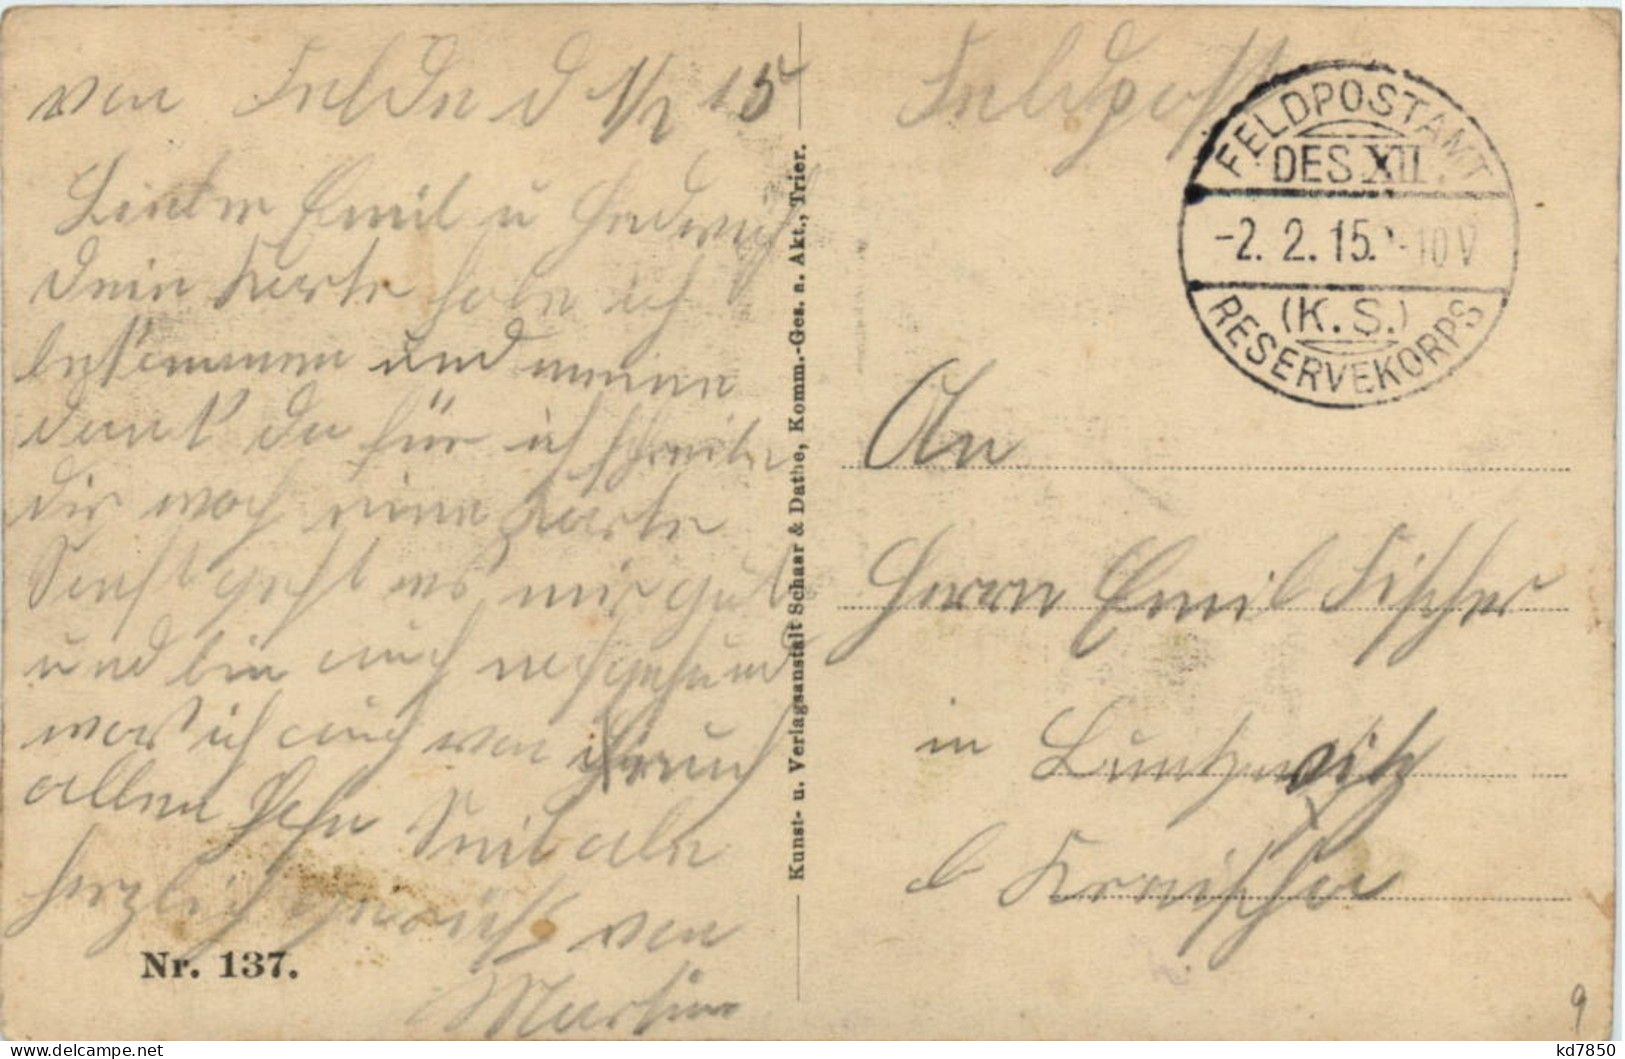 von Felde d 1/2 15
Lieber Emil u Hedwich
deine Karte habe ich
bekommen und meinen
dank da für ich schreibe
dir noch eine Karte
Sonst geht es mir gut
und bin auch gesund
was ich auch von euch
allen Seid alle
herzlich gegrüßt von
Martin
Nr. 137.
Kunst- u. Verlagsanstalt Schaar & Dathe, Komm.-Ges. a. Akt., Trier.
Feldpost
FELDPOSTAMT
DES XII.
-2. 2. 15. -10 V
(K. S.)
RESERVEKORPS
An
Herrn Emil Fischer
in Lungkwitz
b Kreischa
9
kd7850